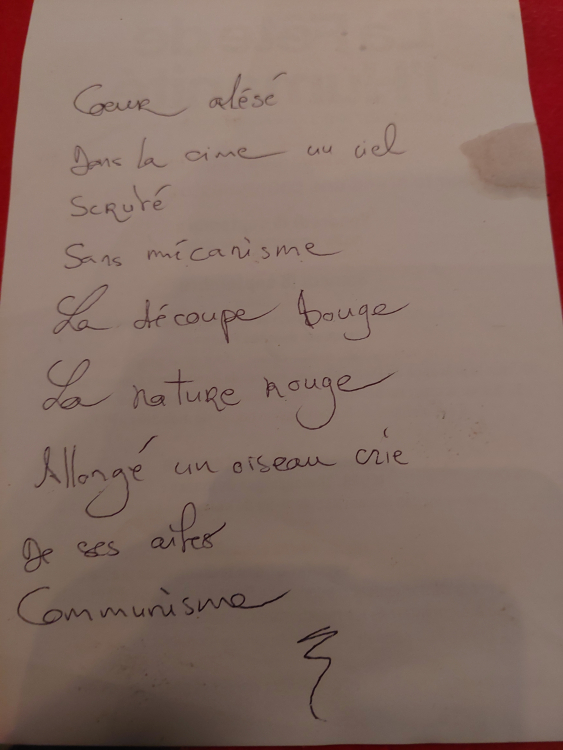 Cœur alésé
Dans la cime un ciel
Scruté
Sans mécanisme
La découpe bouge
La nature rouge
Allongé un oiseau crie
De ses ailes
Communisme